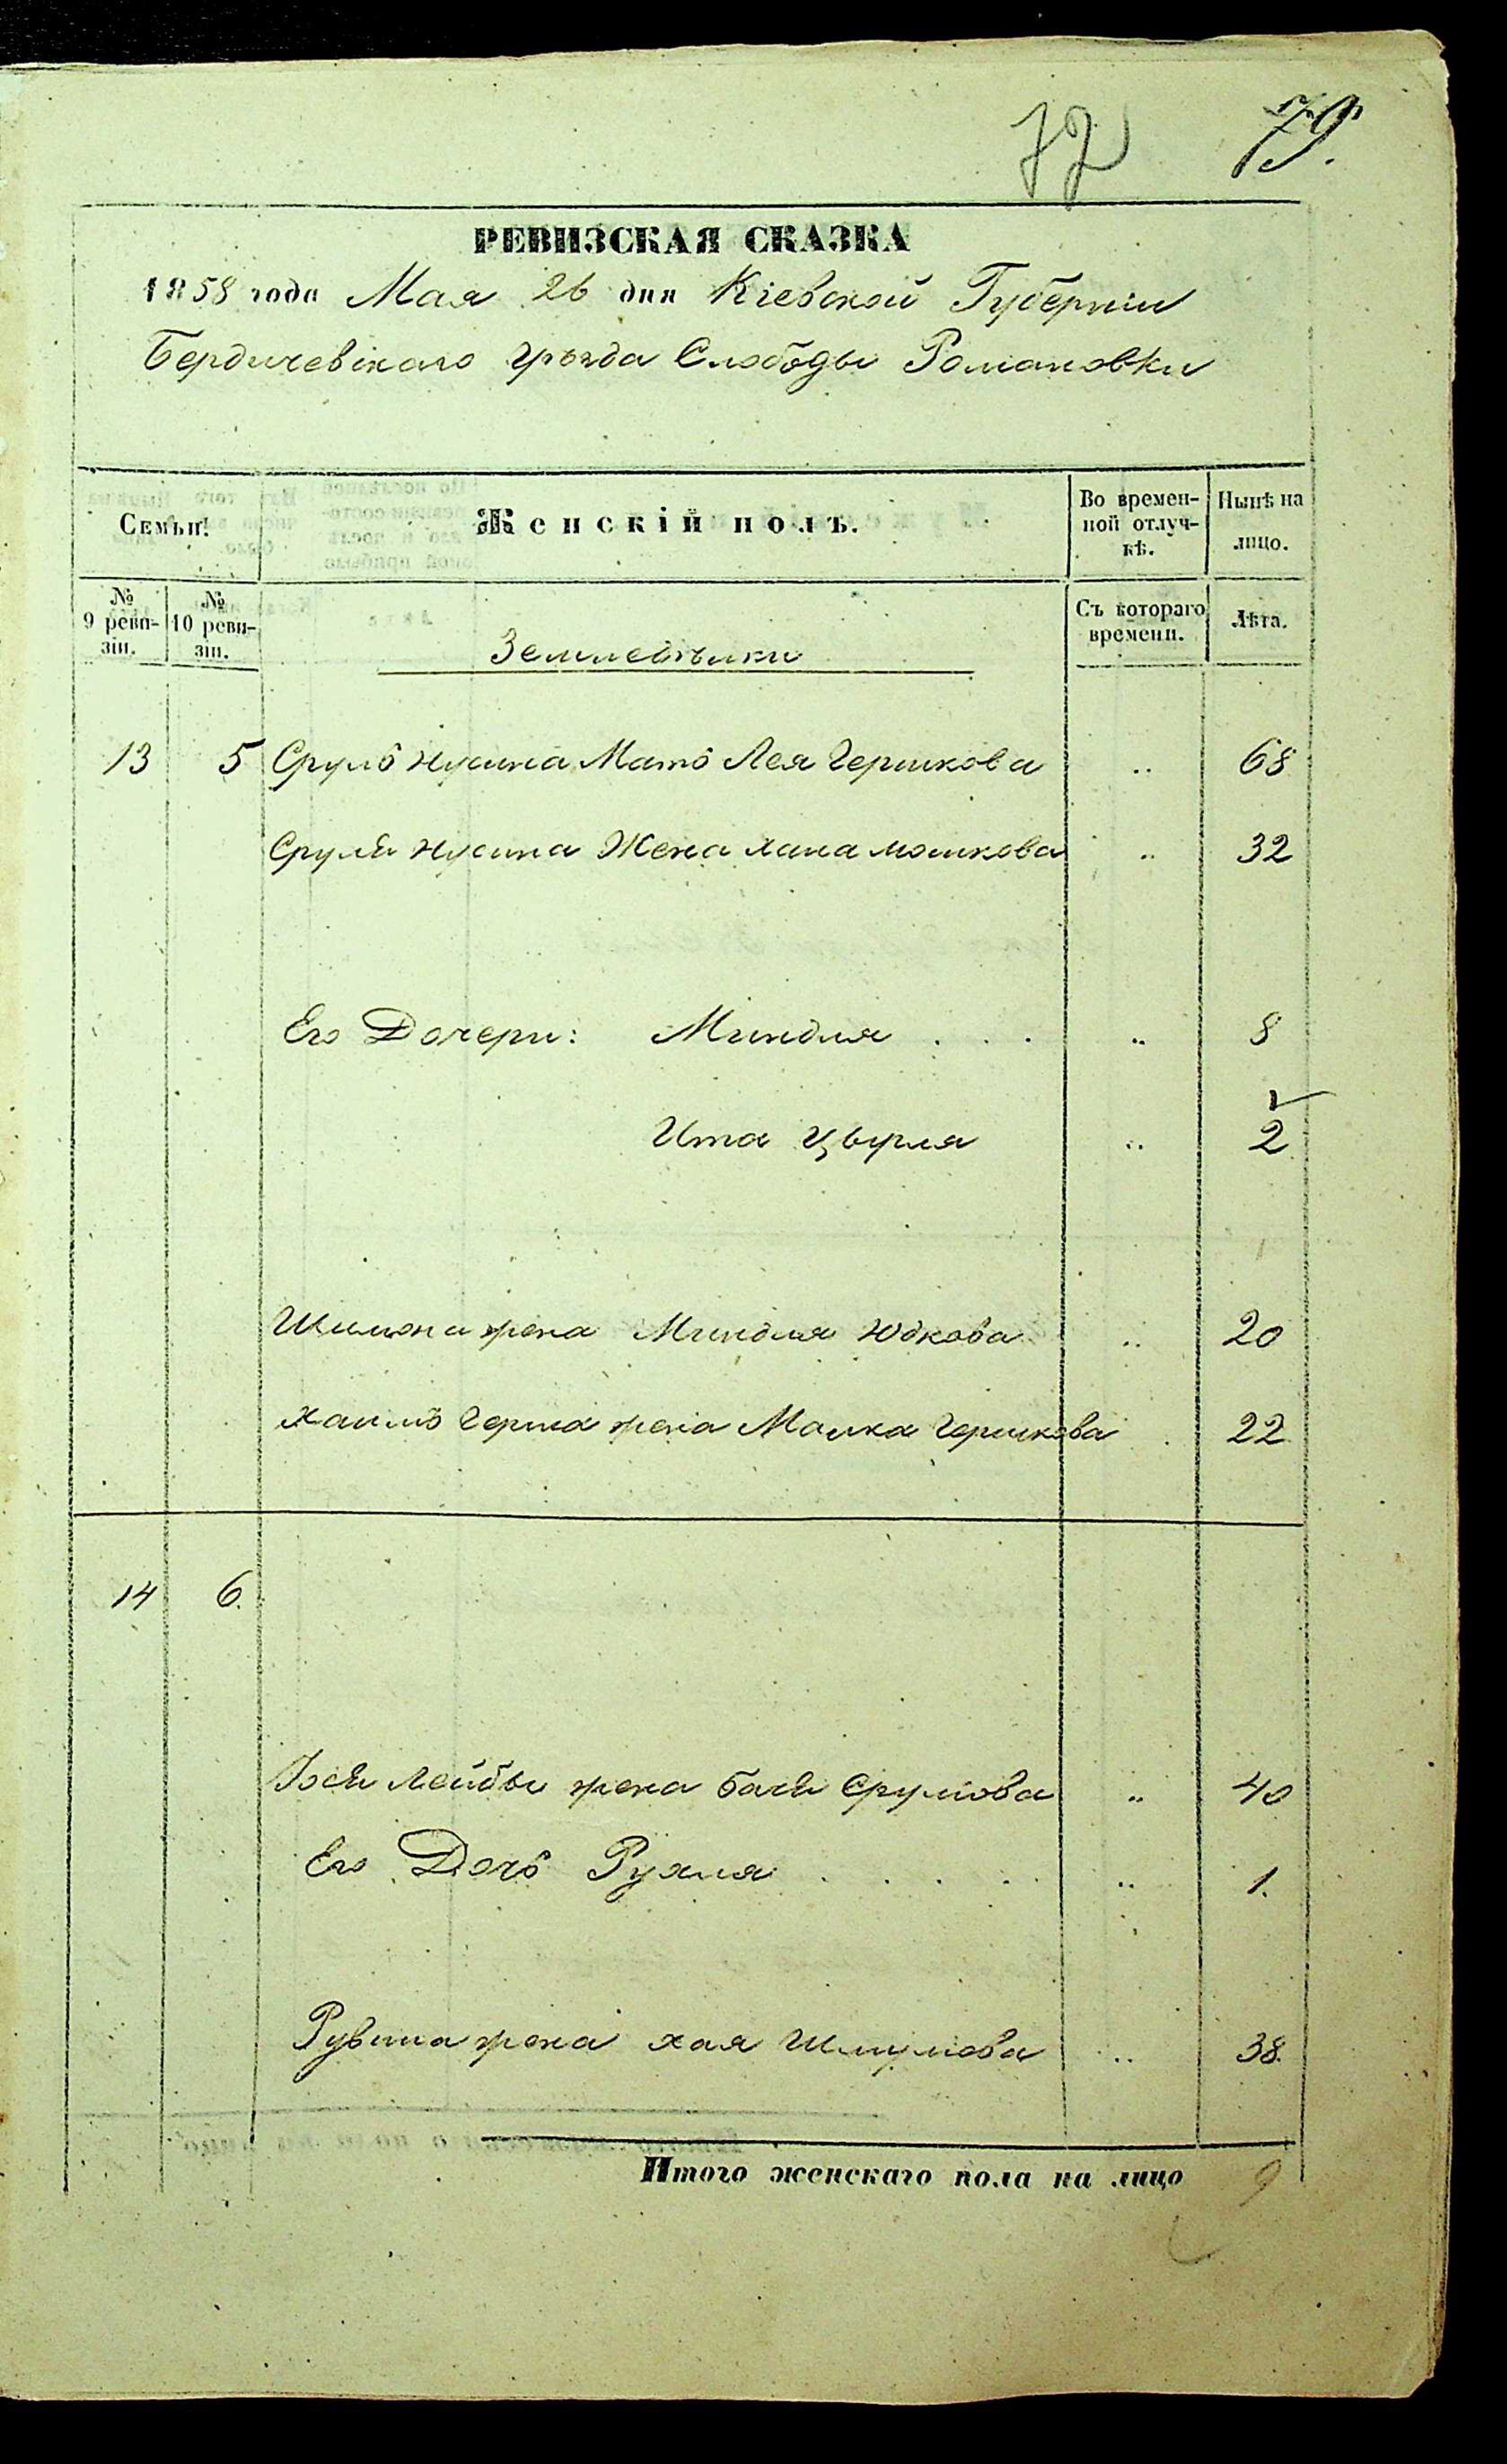 72 79.
РЕВИЗСКАЯ СКАЗКА
1858 года Мая 26 дня Кіевской Губерніи
Бердичевскаго уѣзда Слободы Романовки
Семьи.
Женскій полъ.
Во времен-
ной отлуч-
кѣ.
Нынѣ на
лицо.
№
9 реви-
зіи.
№
10 реви-
зіи.
Земледѣльцы
Съ котораго
времени.
Лѣта.
13 5 Сруль Нусина Мать Лея Гершкова .. 68
Сруля Нусина Жена хана мошкова .. 32
Его Дочери: Миндля . . . .. 8
Ита Цвурля .. 2
Шимона жена Миндля Юдкова .. 20
Хаимъ Герша жена Малка Гершкова . 22
14 6.
Лейбы жена бася Срулова .. 40
Его Дочь Рухля . . . . .. 1.
Рувина жена хая Шмулова .. 38.
Итого женскаго пола на лицо 9